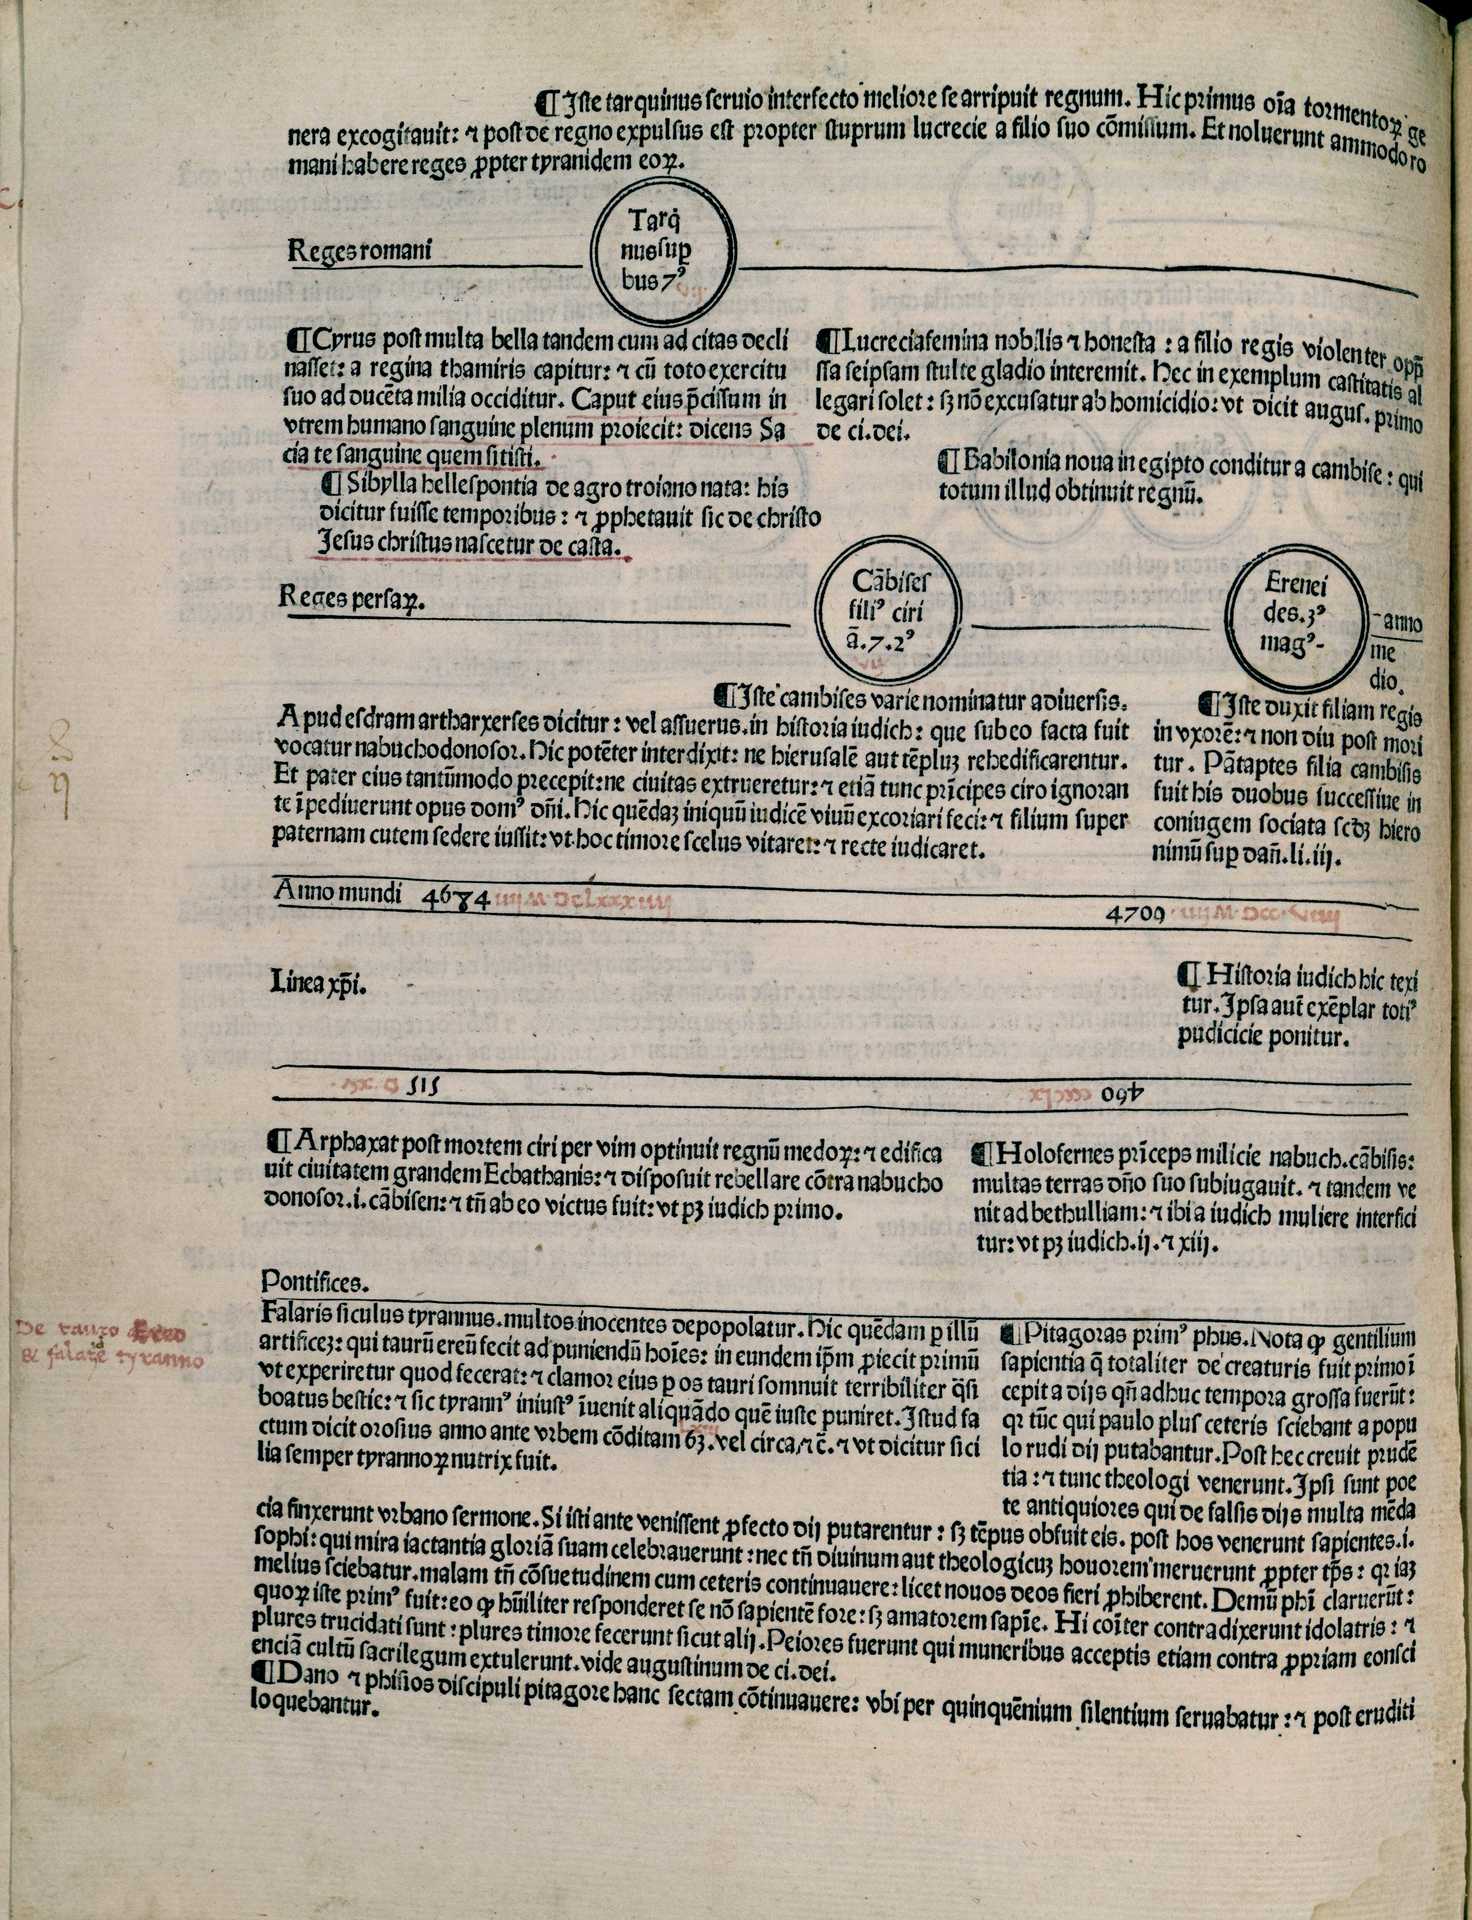 ¶Iste tarquinus seruio interfecto meliore se arripuit regnum. Hic primus oīa tormentoꝝ ge
nera excogitauit: ⁊ post de regno expulsus est propter stuprum lucrecie a filio suo cōmissum. Et noluerunt ammodo ro
mani habere reges ꝓpter tyranidem eoꝝ.
Tarq̇
nus suꝑ
bus 7ꝰ
Reges romani
¶Cyrus post multa bella tandem cum ad citas decli
nasset: a regina thamiris capitur: ⁊ cū toto exercitu
suo ad ducēta milia occiditur. Caput eius p̄cissum in
vtrem humano sanguine plenum proiecit: dicens Sa
cia te sanguine quem sitisti.
¶Sibylla hellespontia de agro troiano nata: his
dicitur fuisse temporibus: ⁊ ꝓphetauit sic de christo
Jesus christus nascetur de casta.
¶Lucrecia femina nobilis ⁊ honesta : a filio regis violenter opp̄
ssa seipsam stulte gladio interemit. Hec in exemplum castitatis al
legari solet: sꝫ nō excusatur ab homicidio: vt dicit augus. primo
de ci.dei.
¶Babilonia noua in egipto conditur a cambise: qui
totum illud obtinuit regnū.
Reges persaꝝ.
Cābises
filiꝰ ciri
ā.7.2ꝰ
Erenei
des.3ꝰ
magꝰ-
-anno
me
dio.
¶Iste cambises varie nominatur a diuersis.
Apud esdram artharxerses dicitur: vel assuerus. in historia iudich: que sub eo facta fuit
vocatur nabuchodonosor. Hic potēter interdixit: ne hierusalē aut tēpluꝫ rehedificarentur.
Et pater eius tantūmodo precepit: ne ciuitas extrueretur: ⁊ etiā tunc prīcipes ciro ignoran
te īpediuerunt opus domꝰ dn̄i. Hic quēdaꝫ iniquū iudicē viuū excoriari feci: ⁊ filium super
paternam cutem sedere iussit: vt hoc timore scelus vitaret: ⁊ recte iudicaret.
¶Iste duxit filiam regis
in vxorē: ⁊ non diu post mori
tur. Pātaptes filia cambisis
fuit his duobus successiue in
coniugem sociata scd̄ꝫ hiero
nimū suꝑ dañ.li.iij.
Anno mundi 4684 iiij M DCLXXXiiij
4709 iiij M DCC Viiij
Linea xp̄i.
¶Historia iudich hic texi
tur. Ipsa aut̄ exēplar totiꝰ
pudicicie ponitur.
515
490
¶Arphaxat post mortem ciri per vim optinuit regnū medoꝝ: ⁊ edifica
uit ciuitatem grandem Ecbathanis: ⁊ disposuit rebellare cōtra nabucho
donosor.i.cābisen: ⁊ tn̄ ab eo victus fuit: vt pꝫ iudich primo.
¶Holofernes prīceps milicie nabuch.cābisis:
multas terras dn̄o suo subiugauit. ⁊ tandem ve
nit ad bethulliam: ⁊ ibi a iudich muliere interfici
tur: vt pꝫ iudich.ij.⁊ xiij.
Pontifices.
De tauro ereo
& falare tyranno
Falaris siculus tyrannus. multos inocentes depopolatur. Hic quēdam ꝑ illū
artificeꝫ: qui taurū ereū fecit ad puniendū hoīes: in eundem ip̄m ꝓiecit primū
vt experiretur quod fecerat: ⁊ clamor eius ꝑ os tauri somnuit terribiliter q̄si
boatus bestie: ⁊ sic tyrannꝰ iniustꝰ īuenit aliquādo quē iuste puniret. Istud fa
ctum dicit orosius anno ante vrbem cōditam 63. vel circa / ⁊ c̄. ⁊ vt dicitur sici
lia semper tyrannoꝝ nutrix fuit.
¶Pitagoras primꝰ phus. Nota ꝙ gentilium
sapientia q̄ totaliter de creaturis fuit primo ī
cepit a dijs qn̄ adhuc tempora grossa fuerūt:
qꝛ tūc qui paulo plus ceteris sciebant a popu
lo rudi dij putabantur. Post hec creuit prudē
tia: ⁊ tunc theologi venerunt. Ipsi sunt poe
te antiquiores qui de falsis dijs multa mēda
cia finxerunt vrbano sermone. Si isti ante venissent ꝓfecto dij putarentur: sꝫ tēpus obfuit eis. post hos venerunt sapientes.i.
sophi: qui mira iactantia gloriā suam celebrauerunt: nec tn̄ diuinum aut theologicuꝫ houorem meruerunt ꝓpter tp̄s: qꝛ iaꝫ
melius sciebatur. malam tn̄ cōsuetudinem cum ceteris continuauere: licet nouos deos fieri ꝓhiberent. Demū phī claruerūt:
quoꝝ iste primꝰ fuit: eo ꝙ hūiliter responderet se nō sapientē fore: sꝫ amatorem sapīe. Hi coīter contradixerunt idolatris: ⁊
plures trucidati sunt: plures timore fecerunt sicut alij. Peiores fuerunt qui muneribus acceptis etiam contra ꝓpriam consci
enciā cultū sacrilegum extulerunt. vide augustinum de ci.dei.
¶Dano ⁊ phisios discipuli pitagore hanc sectam cōtinuauere: vbi per quinquēnium silentium seruabatur: ⁊ post eruditi
loquebantur.